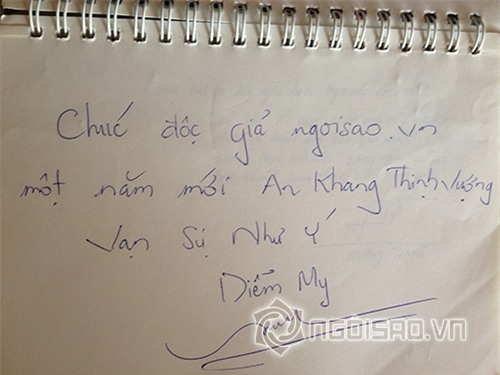 Chúc độc giả ngoisao.vn
một năm mới An Khang Thịnh Vượng
Vạn Sự Như Ý
Diễm My
NGÔISAO.VN